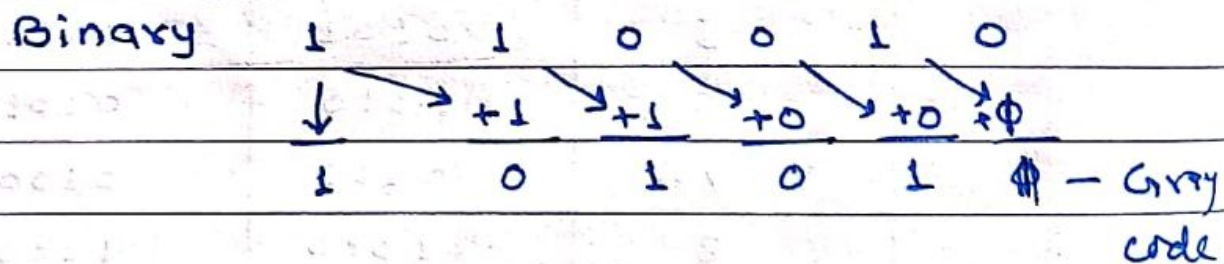 Binary 1 1 0 0 1 0
+1 +1 +0 +0 +
1 0 1 0 1 - Gray
code